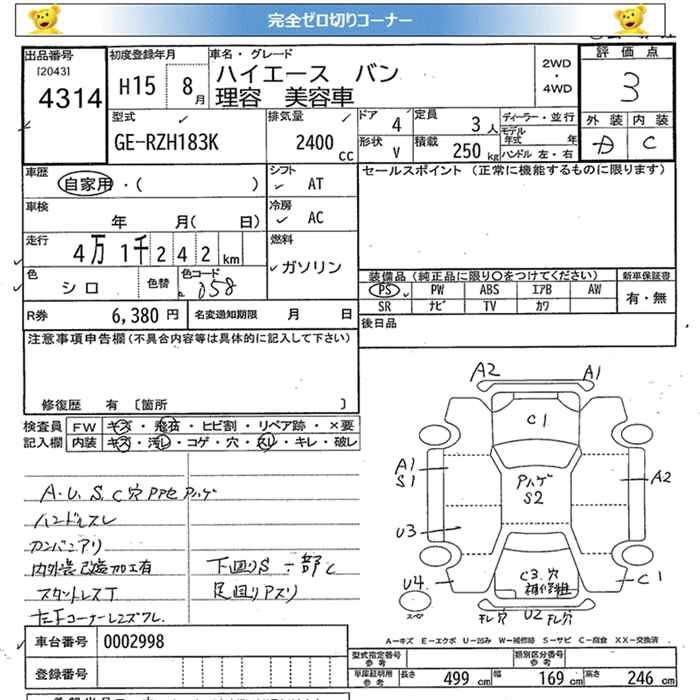 完全ゼロ切りコーナー
出品番号 初度登録年月 車名・グレード 2WD ・ 4WD 評価点
[2043] 4314 H15 8月 ハイエース バン 3
理容 美容車
型式 排気量 ドア 4 定員 3人 ディーラー・並行 外装 内装
GE-RZH183K 2400cc 形状 V 積載 250kg モデル年式 年 C
ハンドル 左・右
車歴 シフト セールスポイント (正常に機能するものに限ります)
自家用・( ) AT
車検 冷房
年 月( 日) AC
走行 4万 1千 2 4 2 km 燃料
ガソリン
色 シロ 色替 色コード 058
装備品 (純正品に限り○をつけてください) 新車保証書
PS PW ABS エアB AW 有・無
SR ナビ TV カワ
R券 6,380 円 名変通知期限 月 日 後日品
注意事項申告欄(不具合内容等は具体的に記入して下さい)
修復歴 有 [箇所 ]
検査員 FW キズ・飛石・ヒビ割・リペア跡・×要
記入欄 内装 キズ・汚レ・コゲ・穴・スレ・キレ・破レ
A2 A1
C1
A1
S1
Pハゲ
S2
A2
U3
U4
C3.穴
C1
U2
A.U.S.C穴
ハンドルスレ
カンバンアリ
内外装改造加工有 下回りS 一部C
スタットレスT 足回リアスリ
左テコーナーレンズワレ
A-キズ E-エクボ U-凹み W-補修跡 S-サビ C-腐食 XX-交換済
車台番号 0002998
登録番号
型式指定番号 参考 類別区分番号 参考
車庫証明用 参考 長さ 499 cm 幅 169 cm 高さ 246 cm